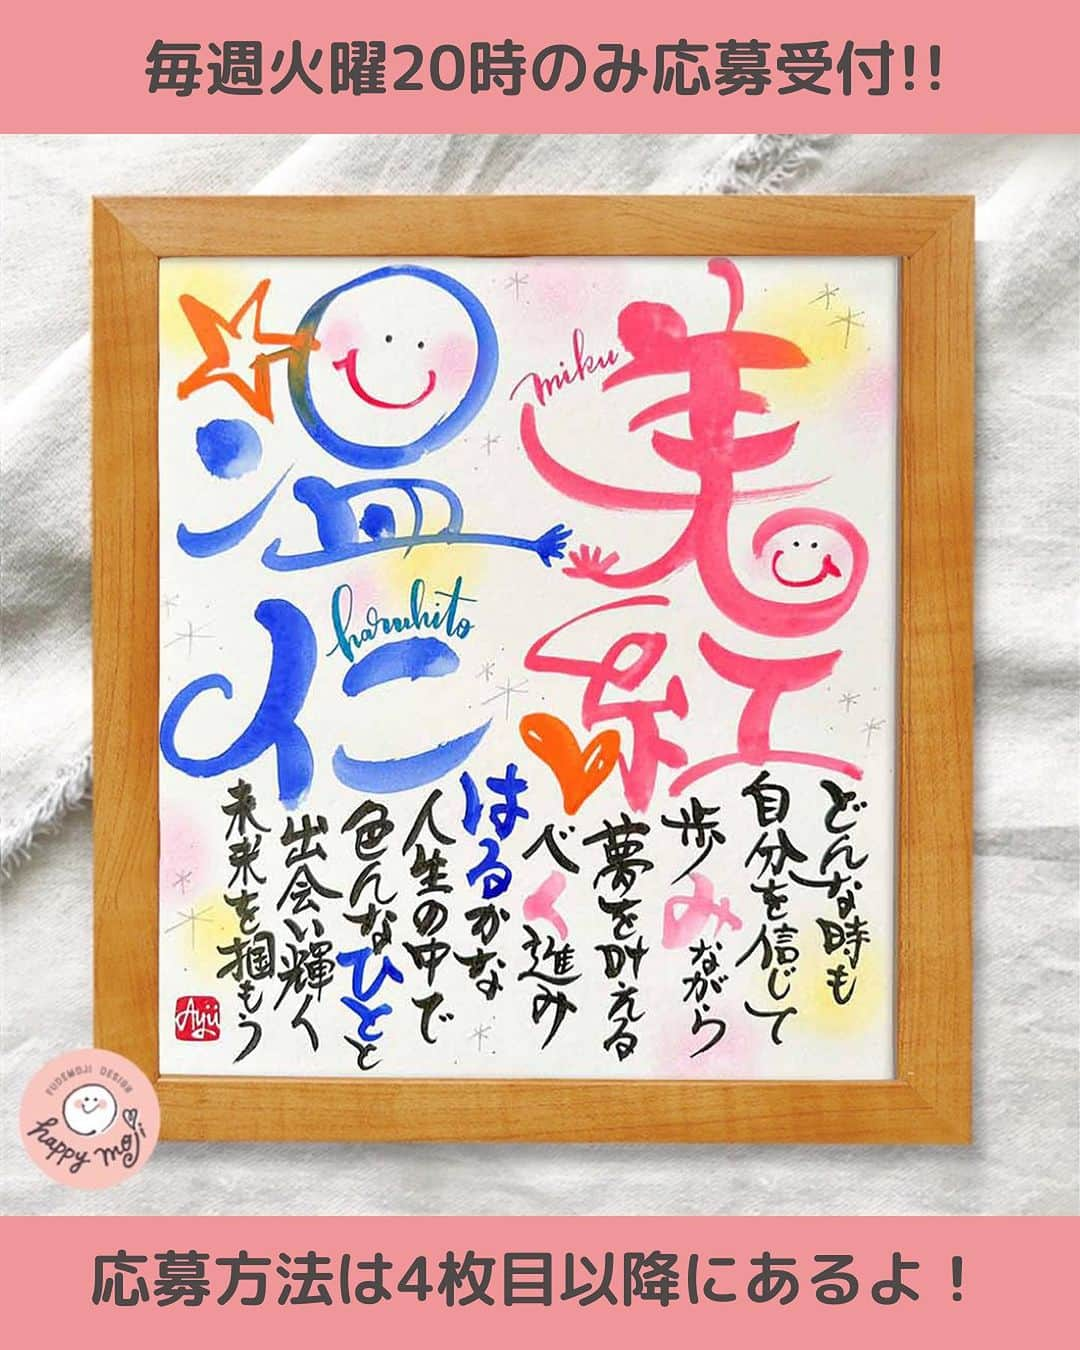 毎週火曜20時のみ応募受付!!
美紅
miku
温仁
haruhito
どんな時も
自分を信じて
歩みながら
夢を叶える
べく進み
はるかな
人生の中で
色んなひとと
出会い輝く
未来を掴もう
Ayü
FUDEMOJI DESIGN
happy moji
応募方法は4枚目以降にあるよ！